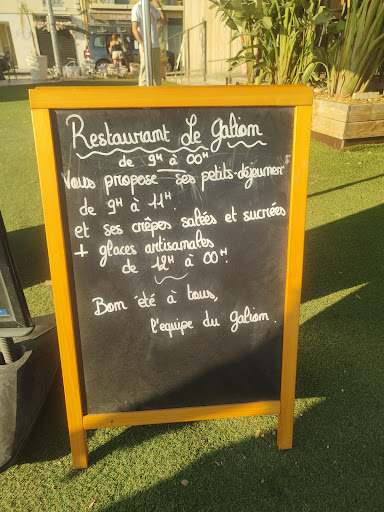 Restaurant Le Galion
de 9H à 00H
Vous propose ses petits-déjeuners
de 9H à 11H.
et ses crêpes salées et sucrées
+ glaces artisanales
de 12H à 00H.
Bon été à tous,
l'équipe du galion.